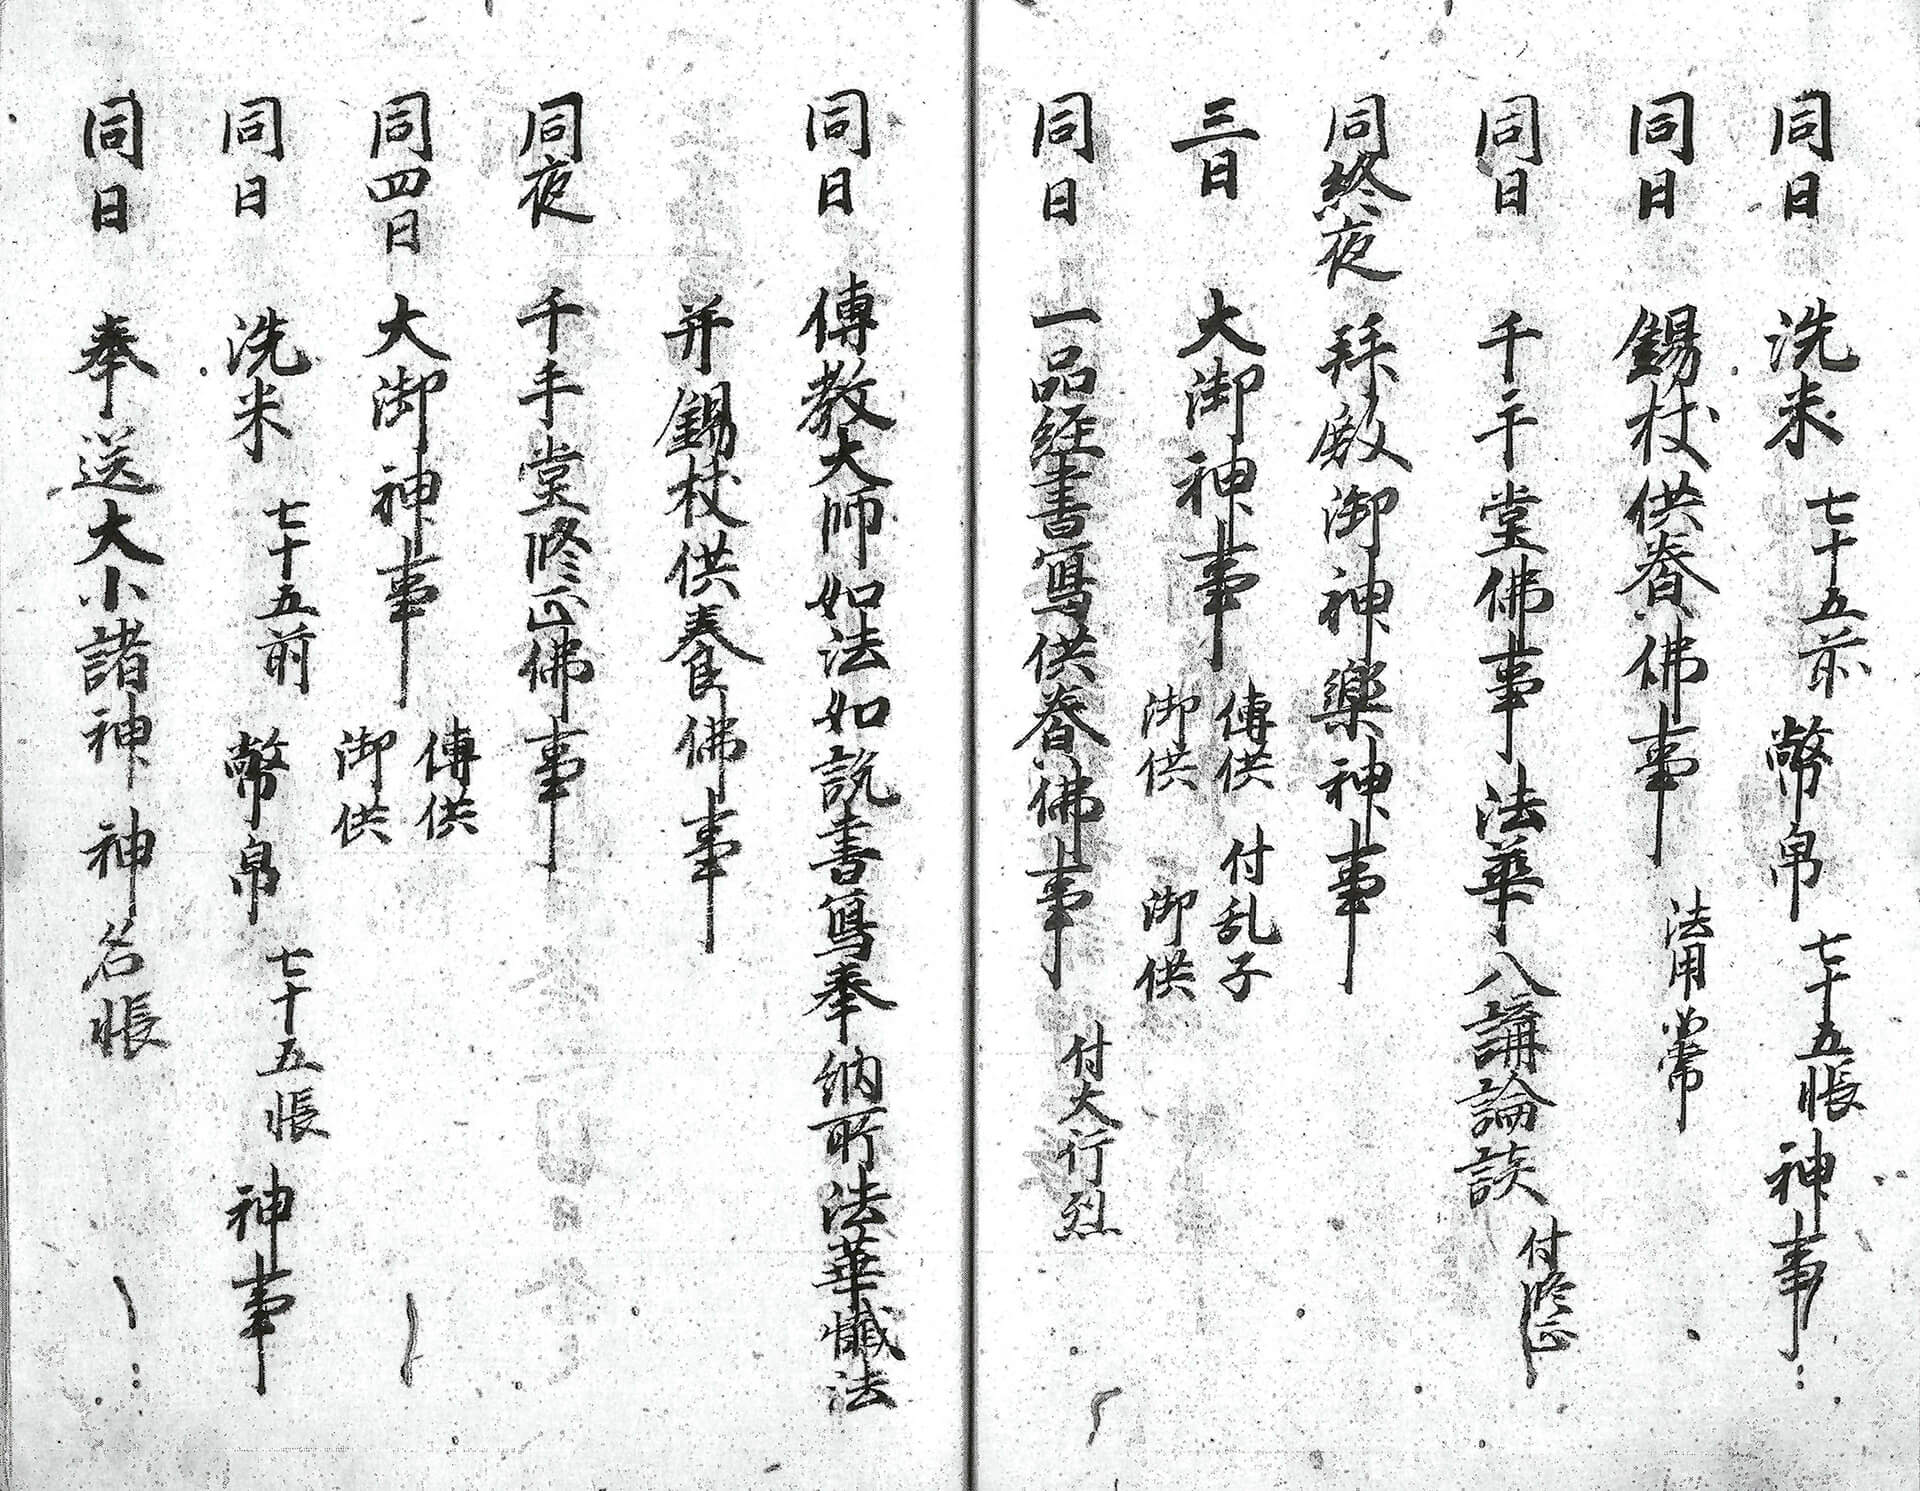 同日　洗米　七十五前　幣帛　七十五帳　神事
同日　錫杖供養佛事　法用如常
同日　千手堂佛事法華八講論談　付修正
同終夜　拜殿御神樂神事
三日　大御神事　傳供　御供　付乱子　御供
同日　一品経書寫供養佛事　付大行烈
同日　傳教大師如法如説書寫奉納所法華懺法
并錫杖供養佛事
同夜　千手堂修正佛事
同四日　大御神事　傳供　御供
同日　洗米　七十五前　幣帛　七十五帳　神事
同日　奉送大小諸神　神名帳